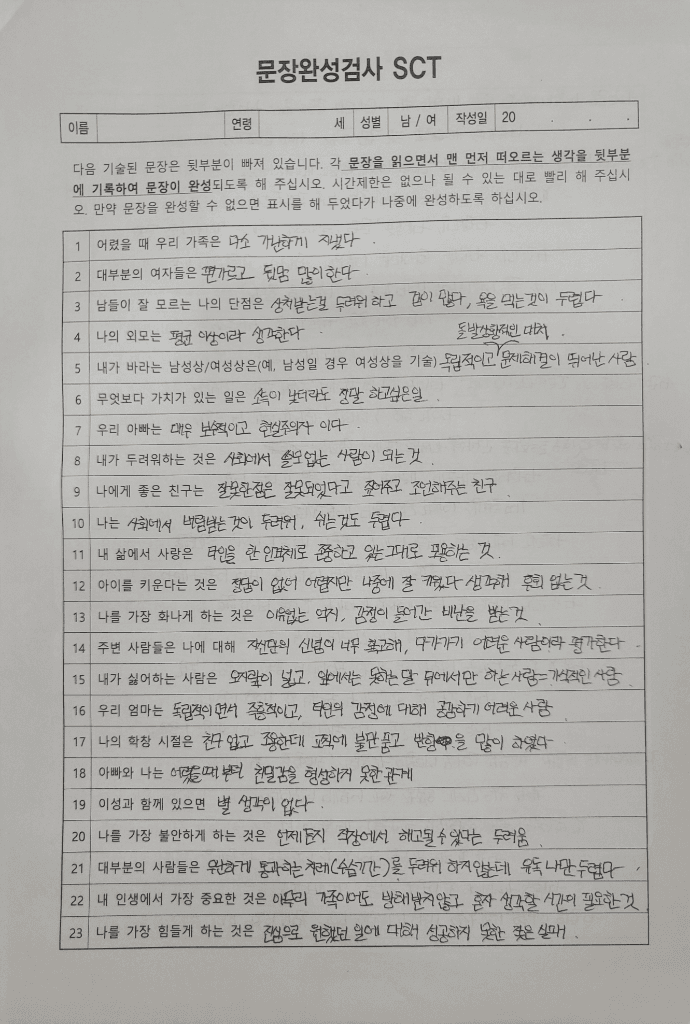 문장완성검사 SCT
이름 연령 세 성별 남 / 여 작성일 20 . . .
다음 기술된 문장은 뒷부분이 빠져 있습니다. 각 문장을 읽으면서 맨 먼저 떠오르는 생각을 뒷부분
에 기록하여 문장이 완성되도록 해 주십시오. 시간제한은 없으나 될 수 있는 대로 빨리 해 주십시
오. 만약 문장을 완성할 수 없으면 표시를 해 두었다가 나중에 완성하도록 하십시오.
1 어렸을 때 우리 가족은 다소 가난하게 지냈다.
2 대부분의 여자들은 편가르고 뒷담 많이한다.
3 남들이 잘 모르는 나의 단점은 상처받는걸 두려워 하고 겁이 많다, 욕을 먹는것이 두렵다
4 나의 외모는 평균 이상이라 생각한다
돌발상황적인 대처.
5 내가 바라는 남성상/여성상은(예, 남성일 경우 여성상을 기술) 독립적이고 문제해결이 뛰어난 사람
6 무엇보다 가치가 있는 일은 소득이 낮더라도 정말 하고싶은일.
7 우리 아빠는 매우 보수적이고 현실주의자 이다.
8 내가 두려워하는 것은 사회에서 쓸모없는 사람이 되는것.
9 나에게 좋은 친구는 잘못한점은 잘못되었다고 짚어주고 조언해주는 친구
10 나는 사회에서 버림받는것이 두려워, 쉬는것도 두렵다.
11 내 삶에서 사랑은 타인을 한 인격체로 존중하고 있는그대로 포용하는 것.
12 아이를 키운다는 것은 정답이 없어 어렵지만 나중에 잘 키웠다 생각커 후회 없는것.
13 나를 가장 화나게 하는 것은 이유없는 억지, 감정이 들어간 비난을 받는것.
14 주변 사람들은 나에 대해 자신만의 신념이 너무 확고해, 다가가기 어려운 사람이라 평가한다.
15 내가 싫어하는 사람은 오지랖이 넓고, 앞에서는 못하는말 뒤에서만 하는사람=가식적인 사람.
16 우리 엄마는 독립적이면서 주흥적이고, 타인의 감정에 대해 공감하기 어려운 사람.
17 나의 학창 시절은 친구 없고 조용한데 교칙에 불만 품고 반항을 많이 하였다.
18 아빠와 나는 어렸을때 부터 친밀감을 형성하지 못한 관계
19 이성과 함께 있으면 별 생각이 없다.
20 나를 가장 불안하게 하는 것은 언제든지 직장에서 해고될 수 있다는 두려움.
21 대부분의 사람들은 무난하게 통과하는 차례(수습기간)를 두려워 하지 않는데 유독 나만 두렵다.
22 내 인생에서 가장 중요한 것은 아무리 가족이어도 방해받지않고 혼자 생각할 시간이 필요한것.
23 나를 가장 힘들게 하는 것은 진심으로 원했던 일에 대해 성공하지 못한 잦은 실패.